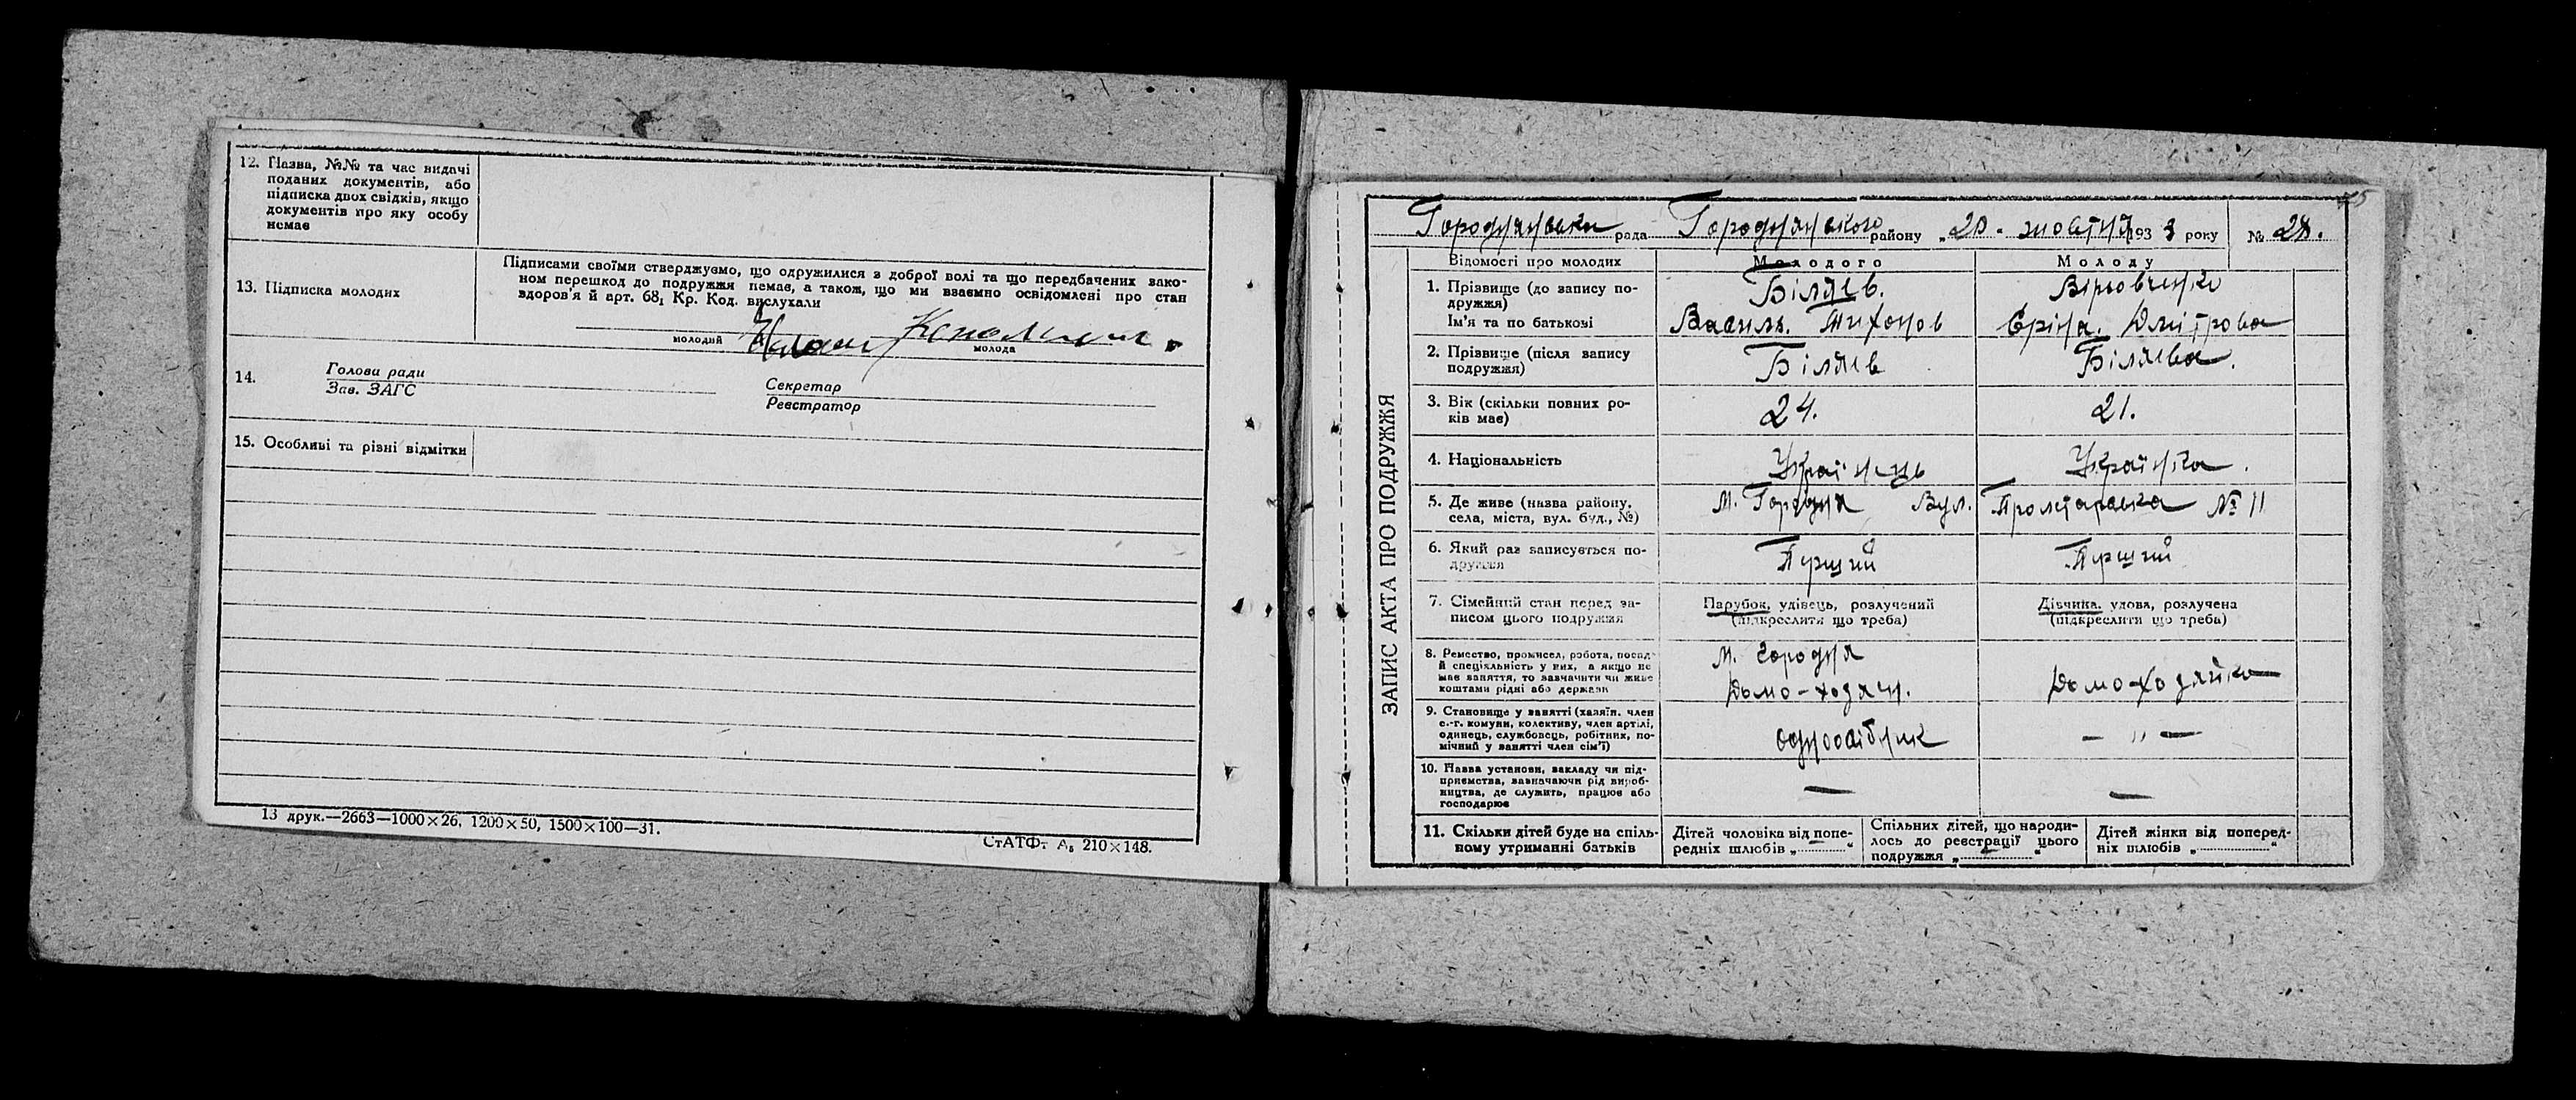 12. Назва, №№ та час видачі
поданих документів, або
підписка двох свідків, якщо
документів про яку особу
немає
13. Підписка молодих
Підписами своїми стверджуємо, що одружилися з доброї волі та що передбачених зако-
ном перешкод до подружжя немає, а також, що ми взаємно освідомлені про стан
здоров'я й арт. 68₁ Кр. Код. вислухали
молодий
молода
14.
Голова ради
Зав. ЗАГС
Секретар
Реєстратор
15. Особливі та різні відмітки
13 друк.—2663—1000×26, 1200×50, 1500×100—31.
СтАТФт А₅ 210×148.
ЗАПИС АКТА ПРО ПОДРУЖЖЯ
Городнянська рада Городнянського району „20. жовтня 1933 року № 28.
Відомості про молодих
Молодого
Молоду
1. Прізвище (до запису по-
дружжя)
Ім'я та по батькові
Біляєв.
Василь. Тихонов
Єріна. Дмітрова
2. Прізвище (після запису
подружжя)
Біляєв
Біляєва.
3. Вік (скільки повних ро-
ків має)
24.
21.
4. Національність
Українець
Українка.
5. Де живе (назва району,
села, міста, вул. буд., №)
м. Городня Вул. Пролетарська № 11
6. Який раз записується по-
дружжя
Перший
Перший
7. Сімейний стан перед за-
писом цього подружжя
Парубок, удівець, розлучений
(підкреслити що треба)
Дівчина, удова, розлучена
(підкреслити що треба)
8. Ремество, промисел, робота, посад-
й спеціяльність у них, а якщо не
має заняття, то зазначити чи живе
коштами рідні або держави
м. Городня
Домо-хозяин.
Домо-хозяйка
9. Становище у занятті (хазяїн, член
с.-г. комуни, колективу, член артілі,
одинець, службовець, робітник, по-
мічний у занятті член сім'ї)
одноосібник
— " —
10. Назва установи, закладу чи під-
приємства, зазначаючи рід вироб-
ництва, де служить, працює або
господарює
—
—
11. Скільки дітей буде на спіль-
ному утриманні батьків
Дітей чоловіка від попе-
редніх шлюбів „ “
Спільних дітей, що народи-
лось до реєстрації цього
подружжя „ “
Дітей жінки від поперед-
ніх шлюбів „ “